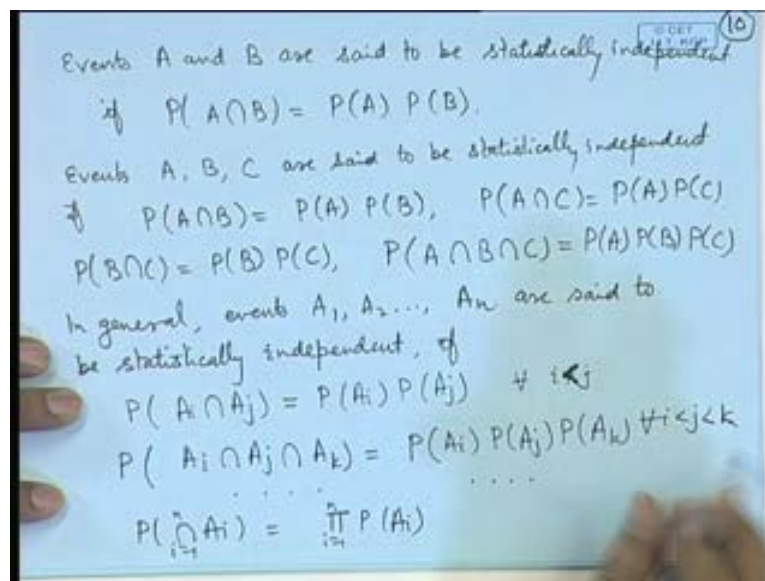 10
© CET
Events A and B are said to be statistically independent
if P(A∩B) = P(A) P(B).
Events A, B, C are said to be statistically independent
if P(A∩B) = P(A) P(B), P(A∩C) = P(A)P(C)
P(B∩C) = P(B) P(C), P(A∩B∩C) = P(A)P(B)P(C)
In general, events A₁, A₂ ..., Aₙ are said to
be statistically independent, if
P(Ai∩Aj) = P(Ai) P(Aj) ∀ i<j
P(Ai∩Aj∩Ak) = P(Ai) P(Aj) P(Ak) ∀ i<j<k
. . . . . . . .
P(⋂ⁿᵢ₌₁ Ai) = ∏ⁿᵢ₌₁ P(Ai)